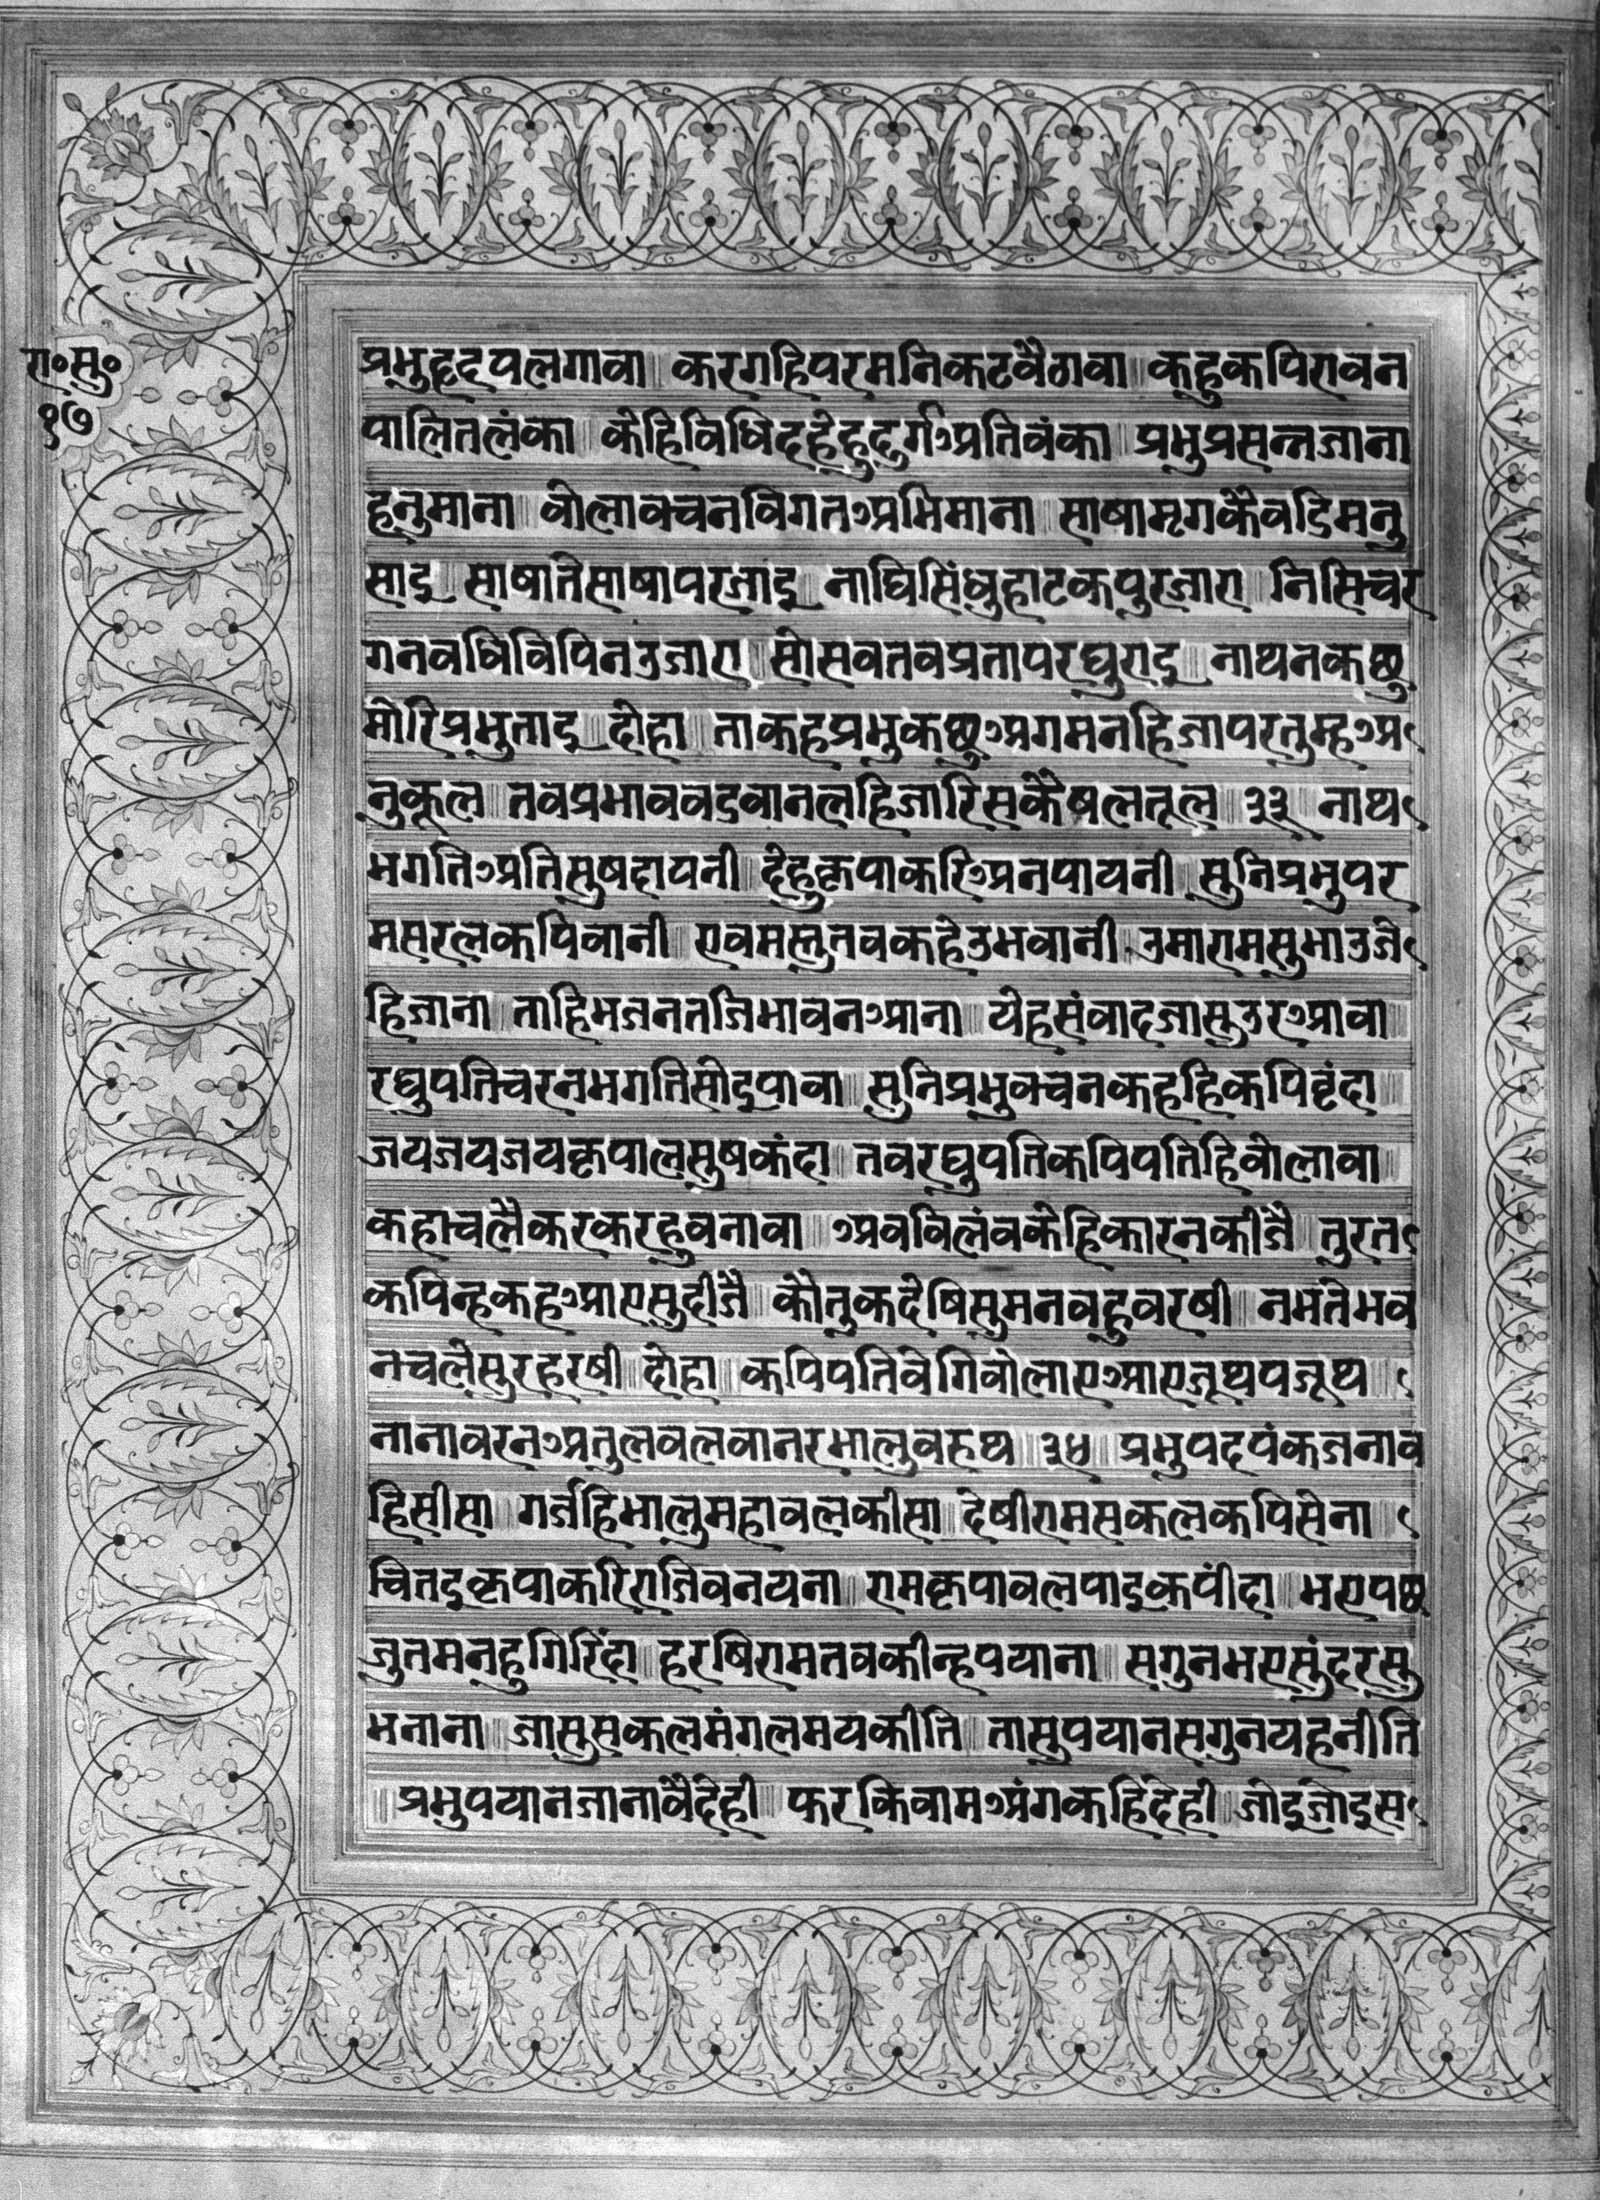 रा॰सु॰
१७
प्रभुहृदयलगावा ॥ करगहिपरमनिकटवैठावा ॥ कहुकपिरावन
पालितलंका ॥ केहिविधिदहेहुदुर्गअतिवंका ॥ प्रभुप्रसन्नजाना
हनुमाना ॥ वोलावचनविगतअभिमाना ॥ साषामृगकैवडिमनु
साई ॥ साषातेसाषापरजाई ॥ नाघिसिंधुहाटकपुरजारा ॥ निसिचर
गनवधिविपिनउजारा ॥ सोसवतवप्रतापरघुराई ॥ नाथनकछु
मोरिप्रभुताई ॥ दोहा ॥ ताकहप्रभुकछुअगमनहिजापरतुम्हअ
नुकूल ॥ तवप्रभाववडवानलहिजारिसकैषलतूल ॥ ३३ ॥ नाथ
भगतिअतिसुषदायनी ॥ देहुकृपाकरिअनपायनी ॥ सुनिप्रभुपर
मसरलकपिवानी ॥ एवमस्तुतवकहेउभवानी ॥ उमारामसुभाउजे
हिजाना ॥ ताहिभजनतजिभावनआना ॥ येहसंवादजासुउरआवा ॥
रघुपतिचरनभगतिसोइपावा ॥ सुनिप्रभुवचनकहहिकपिवृंदा ॥
जयजयजयकृपालसुषकंदा ॥ तवरघुपतिकपिपतिहिवोलावा ॥
कहाचलैकरकरहुवनावा ॥ अवविलंवकेहिकारनकीजै ॥ तुरत
कपिन्हकहआएसुदीजै ॥ कौतुकदेषिसुमनवहुवरषी ॥ नभतेभव
नचलेसुरहरषी ॥ दोहा ॥ कपिपतिवेगिवोलाएआएजूथपजूथ ॥
नानावरनअतुलवलवानरभालुवरुथ ॥ ३४ ॥ प्रभुपदपंकजनाव
हिसीसा ॥ गर्जहिभालुमहावलकीसा ॥ देषीरामसकलकपिसेना ॥
चितइकृपाकरिराजिवनयना ॥ रामकृपावलपाइकपींदा ॥ भएपछ
जुतमनहुगिरिंदा ॥ हरषिरामतवकीन्हपयाना ॥ सगुनभएसुंदरसु
भनाना ॥ जासुसकलमंगलमयकीति ॥ तासुपयानसगुनयहनीति
॥ प्रभुपयानजानावैदेही ॥ फरकिवामअंगकहिदेही ॥ जोइजोइस